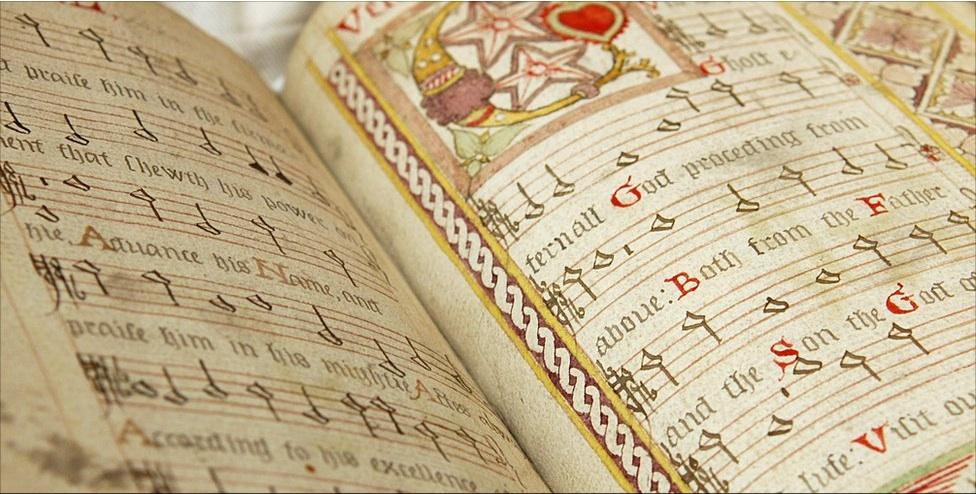 praiſe him in the
ment that ſhewth his power
hie. Aduance his Name, and
praiſe him in his mightie Actes
According to his excellence
Ghoſt e
ternall God proceding from
aboue: Both from the Father
and the Son the God
Viſit